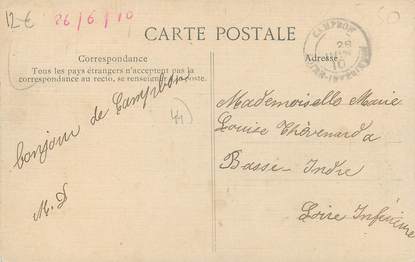 12€
26/6/10
50
CARTE POSTALE
Correspondance
Tous les pays étrangers n'acceptent pas la
correspondance au recto, se renseigner à la poste.
bonjour de Campbon
M. D
44
Adresse
CAMPBON
26
10
LOIRE-INFERIEURE
Mademoiselle Marie
Louise Thévenard a
Basse-Indre
Loire Inférieure